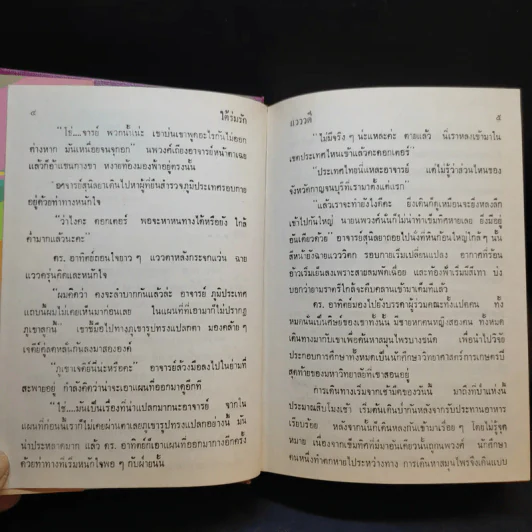 ๔ ใต้ร่มรัก
"ใช่....จารย์ พวกนั้นน่ะ เขาบ่นเขาพูดอะไรกันไม่ออก
ต่างหาก มันเหนื่อยจนจุกอก" นพวงศ์เถียงอาจารย์หน้าตาเฉย
แล้วก็อ้าแขนกางขา หงายท้องมองฟ้าอยู่ตรงนั้น
อาจารย์สุนิลยาเดินไปหาผู้ที่ยืนสำรวจภูมิประเทศรอบกาย
อยู่ด้วยท่าทางหนักใจ
"ว่าไงคะ ดอกเตอร์ พอจะหาหนทางได้หรือยัง ใกล้
ค่ำมากแล้วนะคะ"
ดร. อาทิตย์ถอนใจยาว ๆ แววตาหลังกระจกแว่น ฉาย
แววครุ่นคิดและหนักใจ
"ผมคิดว่า คงจะลำบากกันแล้วล่ะ อาจารย์ ภูมิประเทศ
แถบนี้ผมไม่เคยเห็นมาก่อนเลย ในแผนที่ที่เอามาก็ไม่ปรากฏ
ภูเขาลูกนี้" เขาชี้มือไปทางภูเขารูปทรงแปลกตา มองคล้าย ๆ
เจดีย์คู่ลดหลั่นกันลงมาสององค์
"ภูเขาเจดีย์นี่น่ะหรือคะ" อาจารย์ล้วงมือลงไปในย่ามที่
สะพายอยู่ กำลังคิดว่าน่าจะเอาแผนที่ออกมาดูอีกที
"ใช่....มันเป็นเรื่องที่น่าแปลกมากนะอาจารย์ จากใน
แผนที่ก่อนนี้เราก็ไม่เคยผ่านตาเลยภูเขารูปทรงแปลกอย่างนี้ มัน
น่าประหลาดมาก แล้ว ดร. อาทิตย์ก็เอาแผนที่ออกมากางอีกครั้ง
ด้วยท่าทางที่เริ่มหนักใจพอ ๆ กับฝ่ายนั้น
แววรดี ๕
"ไม่มีจริง ๆ น่ะแหละคะ ตายแล้ว นี่เราหลงเข้ามาใน
เขตประเทศไหนเข้าแล้วคะดอกเตอร์"
"ประเทศไทยนี่แหละอาจารย์ แต่ไม่รู้ว่าส่วนไหนของ
จังหวัดกาญจนบุรีที่เรามาตั้งแต่แรก"
"แล้วเราจะทำยังไงดีคะ ยิ่งเดินก็ดูเหมือนจะยิ่งหลงลึก
เข้าไปกันใหญ่ นายนพวงศ์นั่นก็ไม่น่าทำเข็มทิศหายเลย ยิ่งมีอยู่
อันเดียวด้วย" อาจารย์สุนิลยาถอยไปนั่งที่หินก้อนใหญ่ใกล้ ๆ นั้น
สีหน้ายิ่งฉายแวววิตก รอบกายเริ่มเปลี่ยนแปลง อากาศที่ร้อน
อ้าวเริ่มเย็นลงเพราะสายลมพัดเฉื่อย และท้องฟ้าเริ่มมีสีเทา บ่ง
บอกว่ายามราตรีใกล้จะคืบคลานเข้ามาเต็มทีแล้ว
ดร. อาทิตย์มองไปยังบรรดาผู้ร่วมคณะทั้งแปดคน ทั้ง
หมดนั้นเป็นศิษย์ของเขาทั้งนั้น มีชายหกคนหญิงสองคน ทั้งหมด
เดินทางมากับเขาเพื่อค้นหาสมุนไพรบางชนิด เพื่อนำไปวิจัย
ประกอบการศึกษาทั้งหมดเป็นนักศึกษาวิทยาศาสตร์การเกษตรปี
สุดท้ายของมหาวิทยาลัยที่เขาสอนอยู่
การเดินทางเริ่มจากเช้ามืดของวันนี้ มาถึงที่นี่แห่งนี้
ประมาณสิบโมงเช้า เริ่มต้นเดินป่ากันหลังจากรับประทานอาหาร
เรียบร้อย หลังจากนั้นก็เดินหลงกันเข้ามาเรื่อย ๆ โดยไม่รู้จุด
หมาย เนื่องจากเข็มทิศที่มีมาอันเดียวนั้นถูกนพวงศ์ นักศึกษา
คนหนึ่งทำตกหายไประหว่างทาง การเดินหาสมุนไพรจึงเดินแบบ